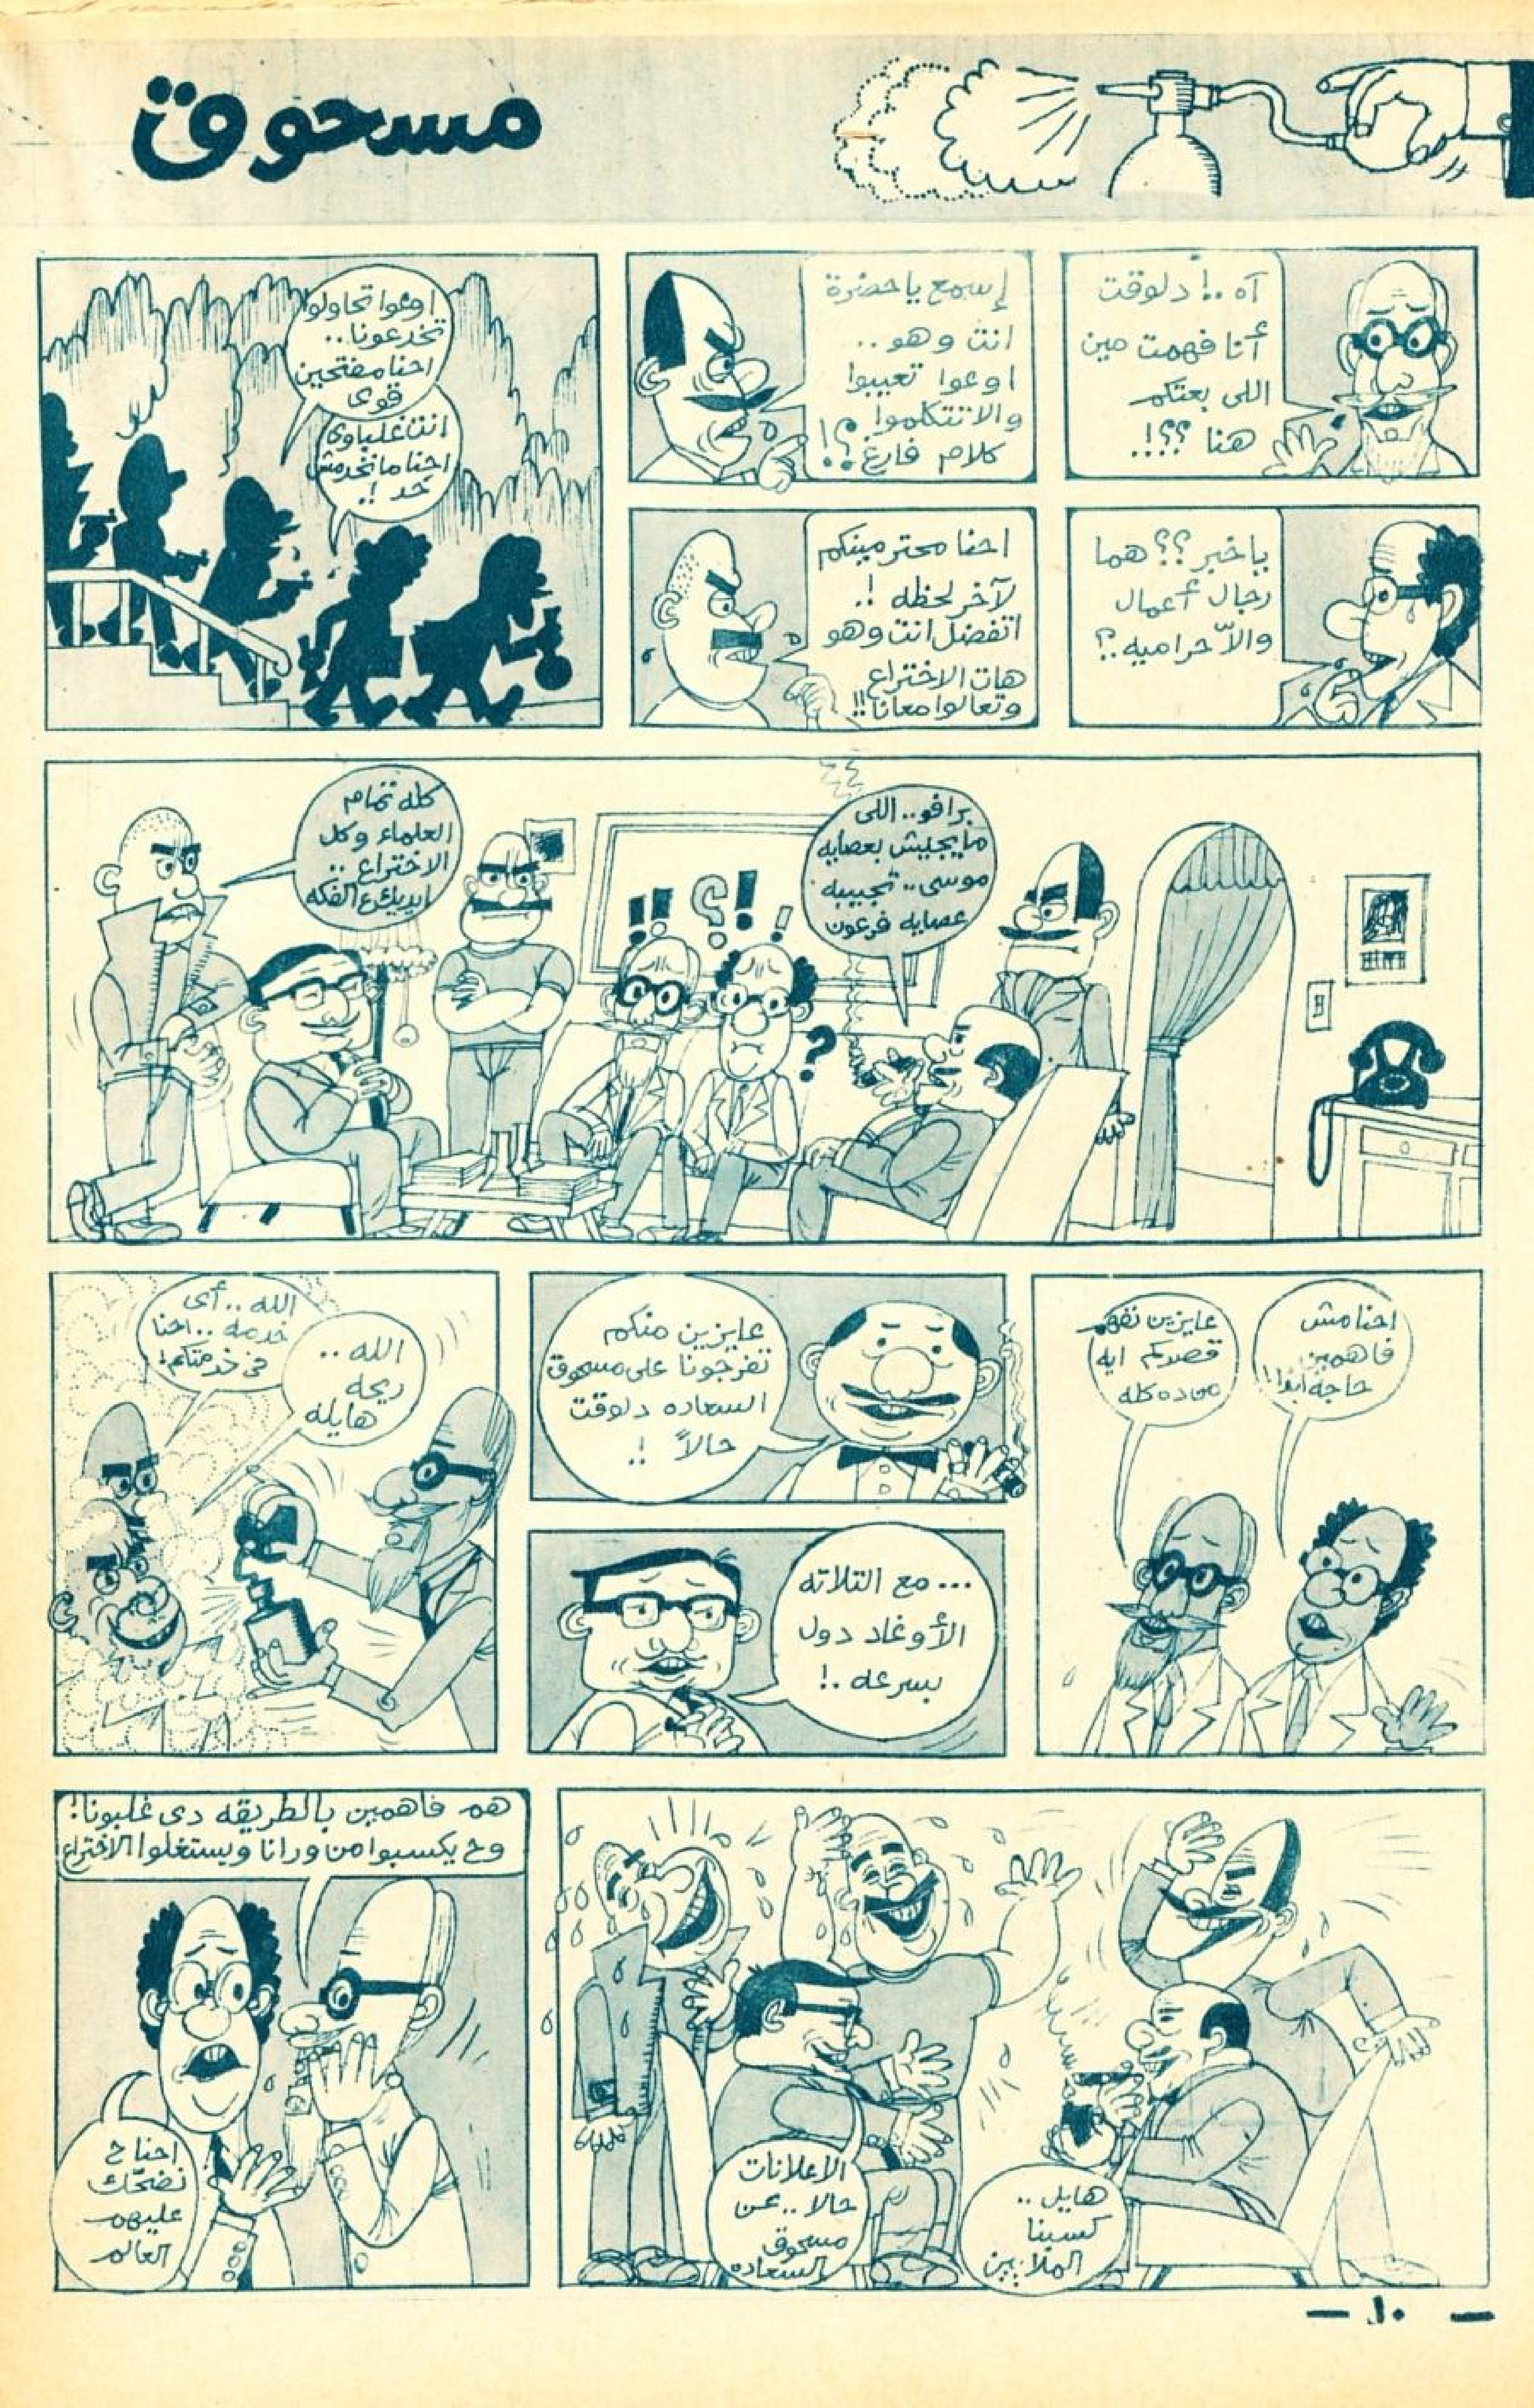 مسحوق
آه ..! دلوقت
أنا فهمت مين
اللى بعتكم
هنا ؟؟!..
إسمع ياحضرة
انت وهو ..
اوعوا تعيبوا
والا تتكلموا
كلام فارغ ؟!!
ياخبر ؟؟ هما
رجال أعمال
والاّ حراميه ..؟
احنا محترمينكم
لآخر لحظه !..
اتفضل انت وهو
هات الاختراع
وتعالوا معانا !!
اوعوا تحاولوا
تخدعونا ..
احنا مفتحين
قوى
انت غلباوى
احنا مانخدمش
حد !..
برافو .. اللى
مايجيبش بعصايه
موسى .. تجيبه
عصايه فرعون
كله تمام
العلماء وكل
الاختراع ..
ايديك ع الفكه
احنا مش
فاهمين
حاجه أبدا !!
عايزين نفهم
قصدكم ايه
من ده كله
عايزين منكم
تفرجونا على مسحوق
السعاده دلوقت
حالاً !..
... مع التلاته
الأوغاد دول
بسرعه .!
الله .. أى
خدمه .. احنا
فى خدمتكم !
الله ..
ريحه
هايله
هايل ..
كسبنا
الملايين
الاعلانات
حالا .. عن
مسحوق
السعاده
هم فاهمين بالطريقه دى غلبونا !
وح يكسبوا من ورانا ويستغلوا الاختراع
احنا ح
نضحّك
عليهم
العالم
— ١٠ —